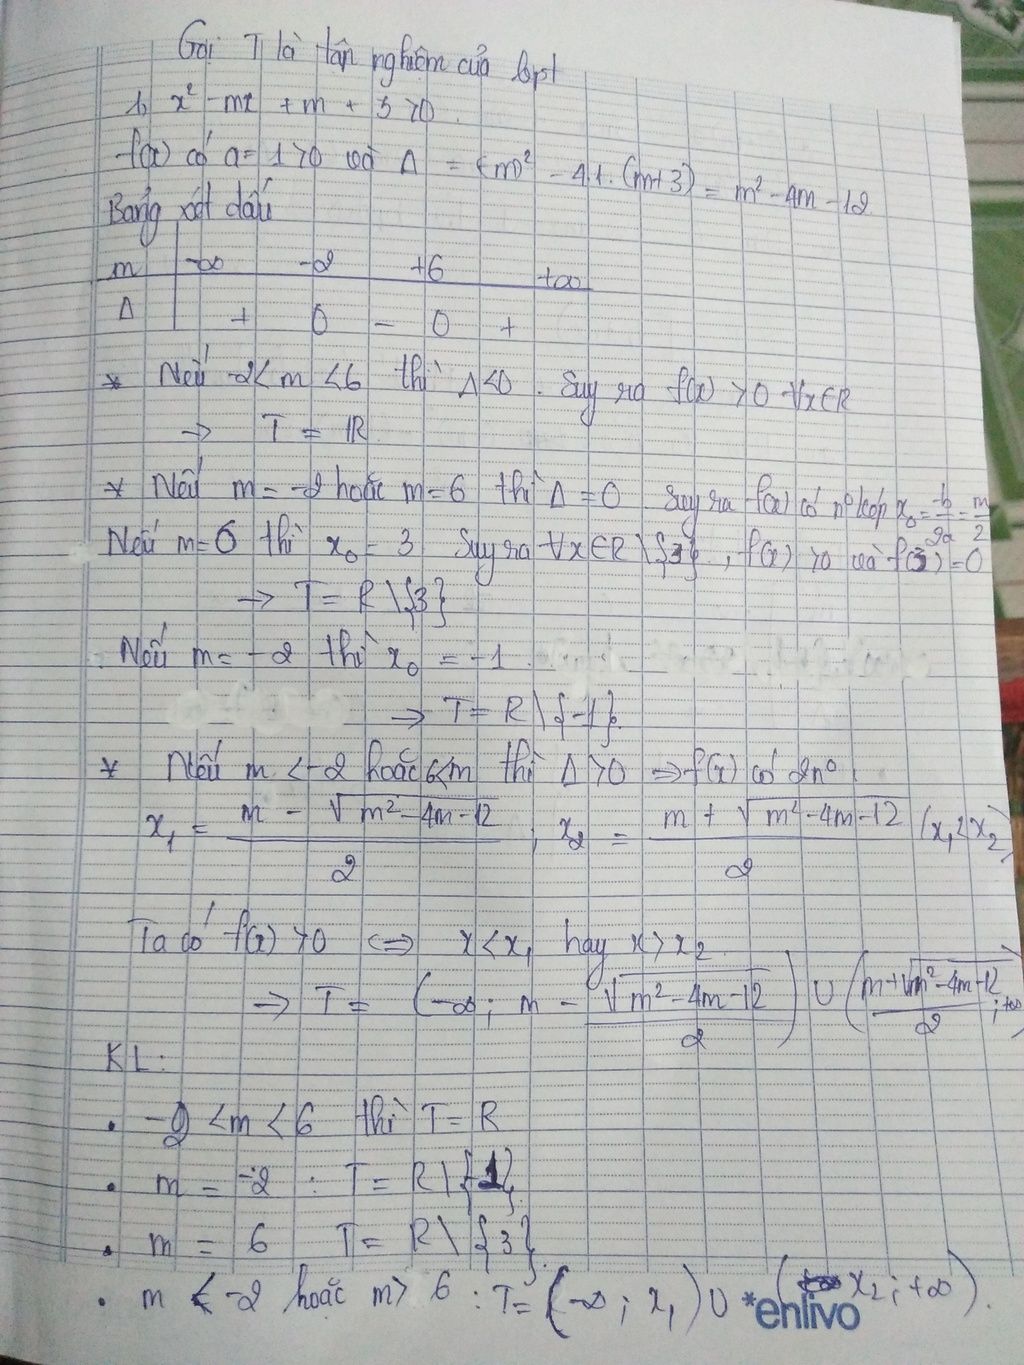 Gọi T là tập nghiệm của bpt
1, x² - mx + m + 3 > 0.
f(x) có a = 1 > 0 và Δ = (-m)² - 4.1.(m+3) = m² - 4m - 12
Bảng xét dấu
m -∞ -2 +6 +∞
Δ + 0 - 0 +
* Nếu -2 < m < 6 thì Δ < 0. Suy ra f(x) > 0 ∀x∈R
→ T = R
* Nếu m = -2 hoặc m = 6 thì Δ = 0 Suy ra f(x) có nº kép x₀ = -b/2a = m/2
Nếu m = 6 thì x₀ = 3 Suy ra ∀x∈R\{3}, f(x) > 0 và f(3) = 0
→ T = R\{3}
. Nếu m = -2 thì x₀ = -1.
→ T = R\{-1}.
* Nếu m < -2 hoặc 6<m thì Δ > 0 ⇒ f(x) có 2nº
x₁ = (m - √(m² - 4m - 12))/2 ; x₂ = (m + √(m² - 4m - 12))/2 (x₁ < x₂)
Ta có f(x) > 0 ⇔ x < x₁ hay x > x₂
→ T = (-∞; m - √(m² - 4m - 12)/2) ∪ ((m + √(m² - 4m - 12))/2 ; +∞)
KL:
• -2 < m < 6 thì T = R
• m = -2 : T = R\{-1}
• m = 6 T = R\{3}.
• m < -2 hoặc m > 6 : T = (-∞; x₁) ∪ (x₂; +∞).
*enlivo